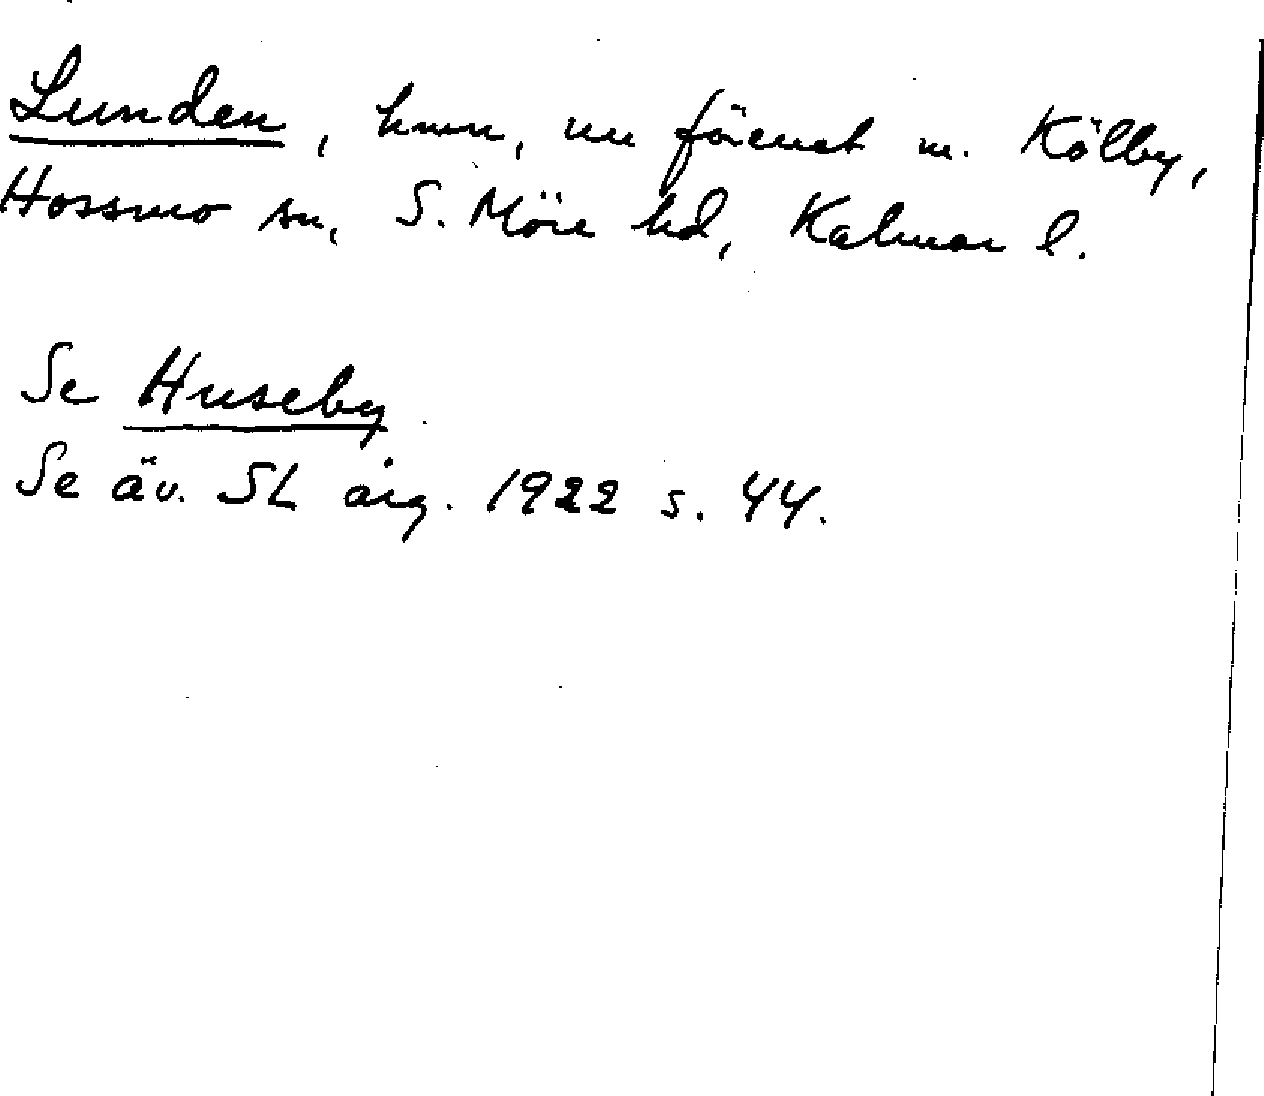 Lunden, hmn, nu förenat m. Kölby,
Hossmo sn, S. Möre hd, Kalmar l.
Se Huseby
Se äv. SL årg. 1922 s. 44.